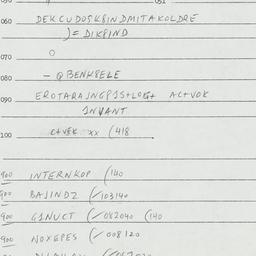 060 DEKCUDOSK8INDMITAKOLDRE
)= DIKPIND
070 O
080 - QBENK8ELE
090 EROTARAJNGPIS+LOG+ AC+VOK
INVANT
100 C+VEK xx (418
900 INTERNKOP (140
900 BAJINDZ (✓103140
900 GINUCT (✓082040 (140
900 NOXEPES (✓008120